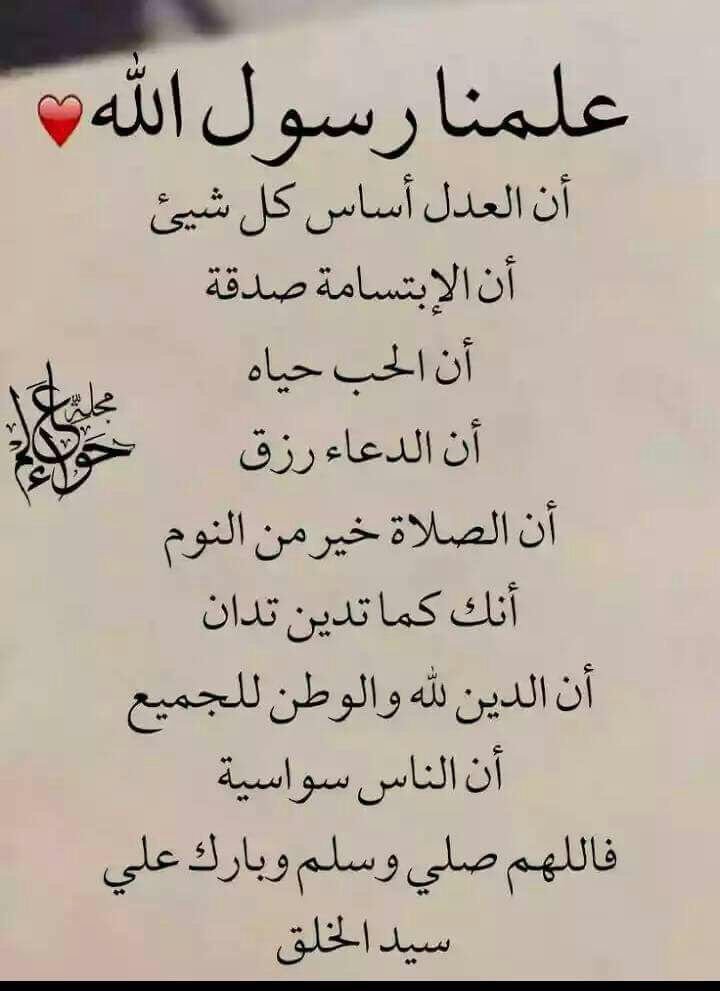 علمنا رسول الله❤️
أن العدل أساس كل شيئ
أن الإبتسامة صدقة
أن الحب حياه
أن الدعاء رزق
أن الصلاة خير من النوم
أنك كما تدين تدان
أن الدين لله والوطن للجميع
أن الناس سواسية
فاللهم صلي وسلم وبارك علي
سيد الخلق
مجلة عالم حواء